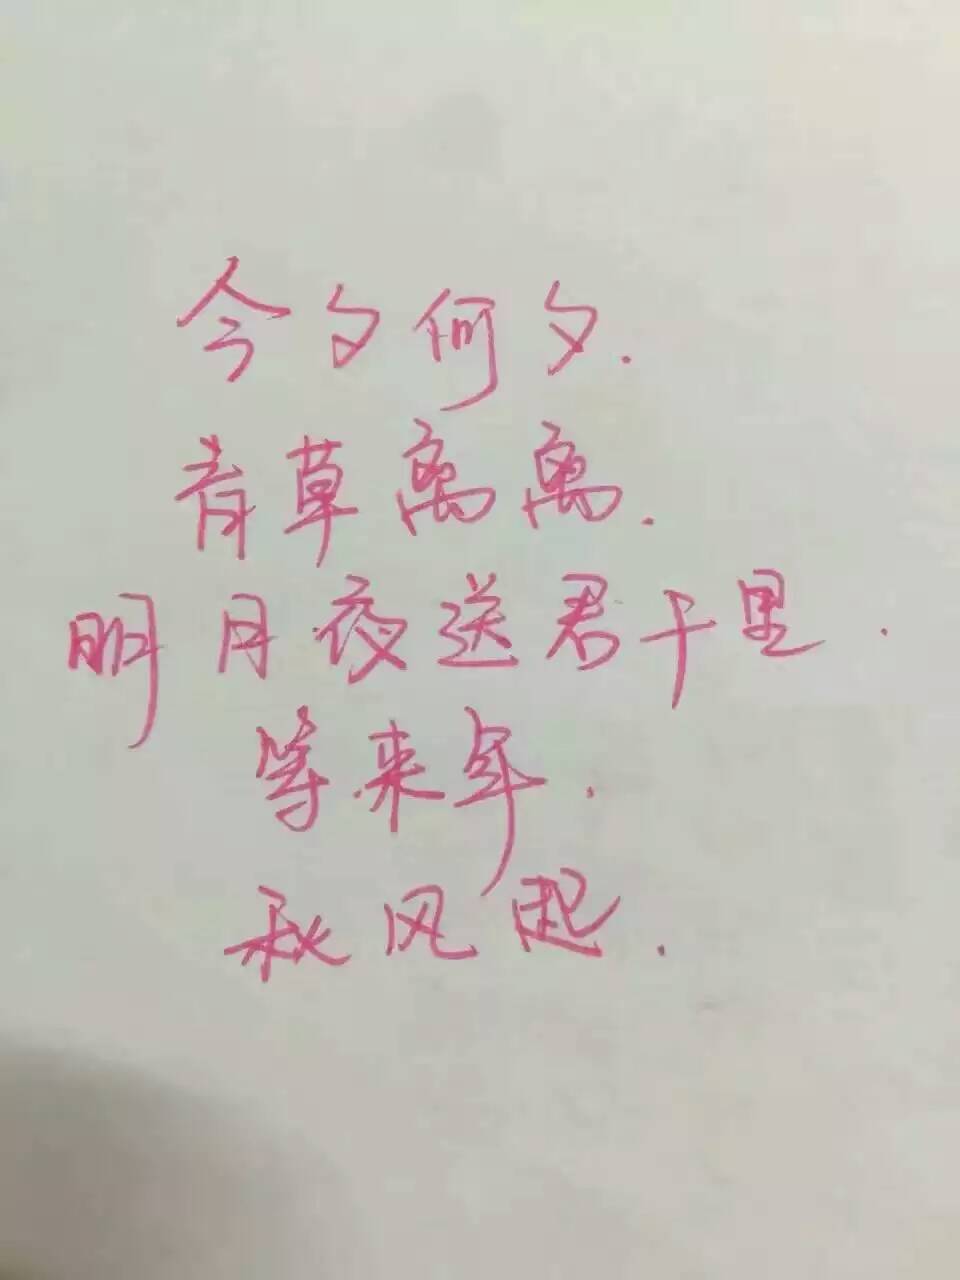 今夕何夕.
青草离离.
明月夜送君千里.
等来年.
秋风起.